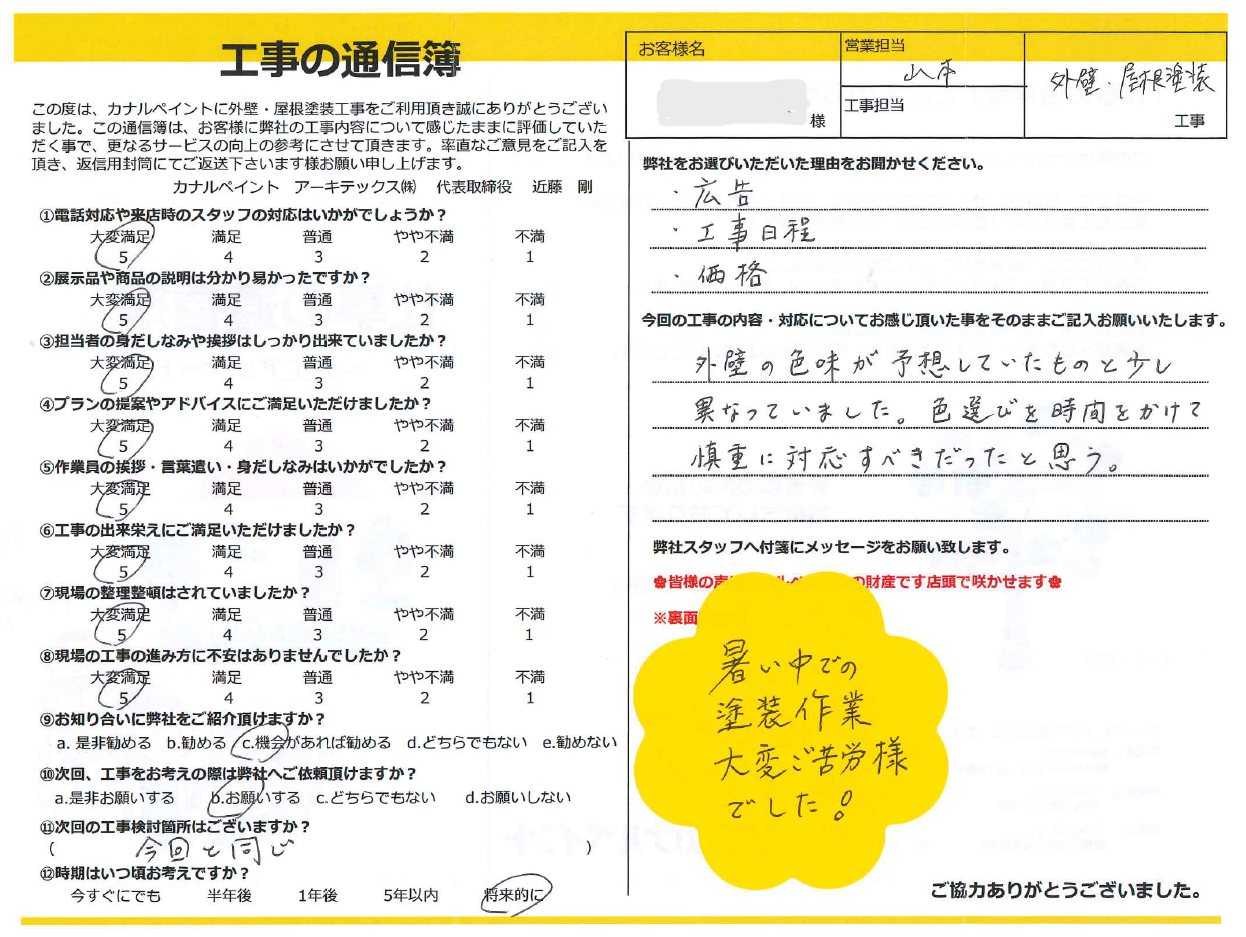 工事の通信簿
この度は、カナルペイントに外壁・屋根塗装工事をご利用頂き誠にありがとうござい
ました。この通信簿は、お客様に弊社の工事内容について感じたままに評価していた
だく事で、更なるサービスの向上の参考にさせて頂きます。率直なご意見をご記入を
頂き、返信用封筒にてご返送下さいます様お願い申し上げます。
カナルペイント アーキテックス㈱ 代表取締役 近藤 剛
①電話対応や来店時のスタッフの対応はいかがでしょうか？
大変満足 満足 普通 やや不満 不満
5 4 3 2 1
②展示品や商品の説明は分かり易かったですか？
大変満足 満足 普通 やや不満 不満
5 4 3 2 1
③担当者の身だしなみや挨拶はしっかり出来ていましたか？
大変満足 満足 普通 やや不満 不満
5 4 3 2 1
④プランの提案やアドバイスにご満足いただけましたか？
大変満足 満足 普通 やや不満 不満
5 4 3 2 1
⑤作業員の挨拶・言葉遣い・身だしなみはいかがでしたか？
大変満足 満足 普通 やや不満 不満
5 4 3 2 1
⑥工事の出来栄えにご満足いただけましたか？
大変満足 満足 普通 やや不満 不満
5 4 3 2 1
⑦現場の整理整頓はされていましたか？
大変満足 満足 普通 やや不満 不満
5 4 3 2 1
⑧現場の工事の進み方に不安はありませんでしたか？
大変満足 満足 普通 やや不満 不満
5 4 3 2 1
⑨お知り合いに弊社をご紹介頂けますか？
a. 是非勧める b.勧める c.機会があれば勧める d.どちらでもない e.勧めない
⑩次回、工事をお考えの際は弊社へご依頼頂けますか？
a.是非お願いする b.お願いする c.どちらでもない d.お願いしない
⑪次回の工事検討箇所はございますか？
( 今回と同じ )
⑫時期はいつ頃お考えですか？
今すぐにでも 半年後 1年後 5年以内 将来的に
お客様名
様
営業担当
山本
工事担当
外壁・屋根塗装
工事
弊社をお選びいただいた理由をお聞かせください。
・広告
・工事日程
・価格
今回の工事の内容・対応についてお感じ頂いた事をそのままご記入お願いいたします。
外壁の色味が予想していたものと少し
異なっていました。色選びを時間をかけて
慎重に対応すべきだったと思う。
弊社スタッフへ付箋にメッセージをお願い致します。
✿皆様の声 の財産です店頭で咲かせます✿
※裏面
暑い中での
塗装作業
大変ご苦労様
でした!
ご協力ありがとうございました。